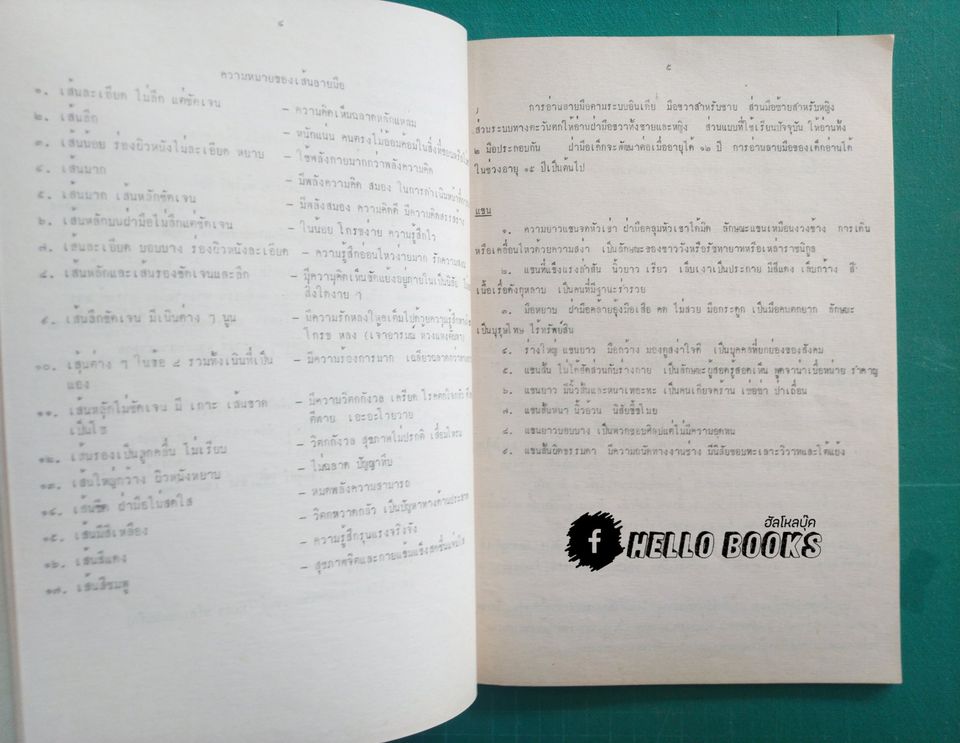 ๔
ความหมายของเส้นลายมือ
๑. เส้นละเอียด ไม่ลึก แต่ชัดเจน - ความคิดเห็นฉลาดหลักแหลม
๒. เส้นลึก - หนักแน่น คนตรงไม่อ้อมค้อมในสิ่งที่ชอบหรือ
๓. เส้นน้อย ร่องผิวหนังไม่ละเอียด หยาบ - ใช้พลังกายมากกว่าพลังความคิด
๔. เส้นมาก - มีพลังความคิด สมอง ในการดำเนินหน้าที่
๕. เส้นมาก เส้นหลักชัดเจน - มีพลังสมอง ความคิดดี มีความคิดสรรสร้าง
๖. เส้นหลักบนฝ่ามือไม่ลึกแต่ชัดเจน - ใจน้อย โกรธง่าย ความรู้สึกไว
๗. เส้นละเอียด บอบบาง ร่องผิวหนังละเอียด - ความรู้สึกอ่อนไหวง่ายมาก รักความสงบ
๘. เส้นหลักและเส้นรองชัดเจนและลึก - มีความคิดเห็นขัดแย้งอยู่ภายในเป็นนิสัย
สิ่งใดง่าย ๆ
๙. เส้นลึกชัดเจน มีเนินต่าง ๆ นูน - มีความรักหลงใหลเต็มไปด้วยความรู้สึก
โกรธ หลง (เจ้าอารมณ์
๑๐. เส้นต่าง ๆ ในข้อ ๙ รวมทั้งเนินที่เป็น - มีความต้องการมาก
แอ่ง
๑๑. เส้นหลักไม่ชัดเจน มี เกาะ เส้นขาด - มีความวิตกกังวล เครียด โรคตกใจกลัว
เป็นโซ่ คีตาย เอะอะโวยวาย
๑๒. เส้นรองเป็นลูกคลื่น ไม่เรียบ - วิตกกังวล สุขภาพไม่ปรกติ เสื่อมโทรม
๑๓. เส้นใหญ่กว้าง ผิวหนังหยาบ - ไม่ฉลาด ปัญญาทึบ
๑๔. เส้นซีด ฝ่ามือไม่สดใส - หมดพลังความสามารถ
๑๕. เส้นมีสีเหลือง - วิตกหวาดกลัว เป็นปัญหาทางด้านประสาท
๑๖. เส้นสีแดง - ความรู้สึกรุนแรงจริงจัง
๑๗. เส้นสีชมพู - สุขภาพจิตและกายแข็งแรงสดชื่นแจ่มใส
๕
การอ่านลายมือตามระบบอินเดีย มือขวาสำหรับชาย ส่วนมือซ้ายสำหรับหญิง
ส่วนระบบทางตะวันตกให้อ่านฝ่ามือขวาทั้งชายและหญิง ส่วนแบบที่ใช้เรียนปัจจุบัน ให้อ่านทั้ง
๒ มือประกอบกัน ฝ่ามือเด็กจะพัฒนาต่อเมื่ออายุได้ ๑๒ ปี การอ่านลายมือของเด็กอ่านได้
ในช่วงอายุ ๑๕ ปีเป็นต้นไป
แขน
๑. ความยาวแขนจดหัวเข่า ฝ่ามือคลุมหัวเข่าได้มิด ลักษณะแขนเหมือนงวงช้าง การเดิน
หรือเคลื่อนไหวด้วยความสง่า เป็นลักษณะของชาววังหรือรัชทายาทหรือเหล่าราชนิกูล
๒. แขนที่แข็งแรงล่ำสัน นิ้วยาว เรียว เล็บเงาเป็นประกาย มีสีแดง เล็บกว้าง สี
เนื้อเรื่อดังกุหลาบ เป็นคนที่มีฐานะร่ำรวย
๓. มือหยาบ ฝ่ามือคล้ายอุ้งมือเสือ คด ไม่สวย มือกระดูก เป็นมือคนตกยาก ลักษณะ
เป็นบุรุษโทษ ไร้ทรัพย์สิน
๔. ร่างใหญ่ แขนยาว มือกว้าง มองดูสง่าใจดี เป็นบุคคลที่ยกย่องของสังคม
๕. แขนสั้น ไม่ได้สัดส่วนกับร่างกาย เป็นลักษณะผู้สอดรู้สอดเห็น พูดจาน่าเบื่อหน่าย รำคาญ
๖. แขนยาว มีนิ้วสั้นและหนาเทอะทะ เป็นคนเกียจคร้าน เซ่อซ่า ป่าเถื่อน
๗. แขนสั้นหนา นิ้วอ้วน นิสัยขี้ขโมย
๘. แขนยาวบอบบาง เป็นพวกชอบศิลปแต่ไม่มีความอดทน
๙. แขนสั้นผิดธรรมดา มีความถนัดทางงานช่าง มีนิสัยชอบทะเลาะวิวาทและโต้แย้ง
ฮัลโหลบุ๊ค
f HELLO BOOKS